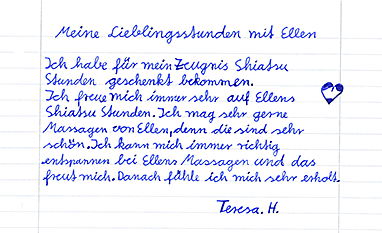 Meine Lieblingsstunden mit Ellen
Ich habe für mein Zeugnis Shiatsu
Stunden geschenkt bekommen.
Ich freue mich immer sehr auf Ellens
Shiatsu Stunden. Ich mag sehr gerne
Massagen von Ellen, denn die sind sehr
schön. Ich kann mich immer richtig
entspannen bei Ellens Massagen und das
freut mich. Danach fühle ich mich sehr erholt.
Teresa. H.